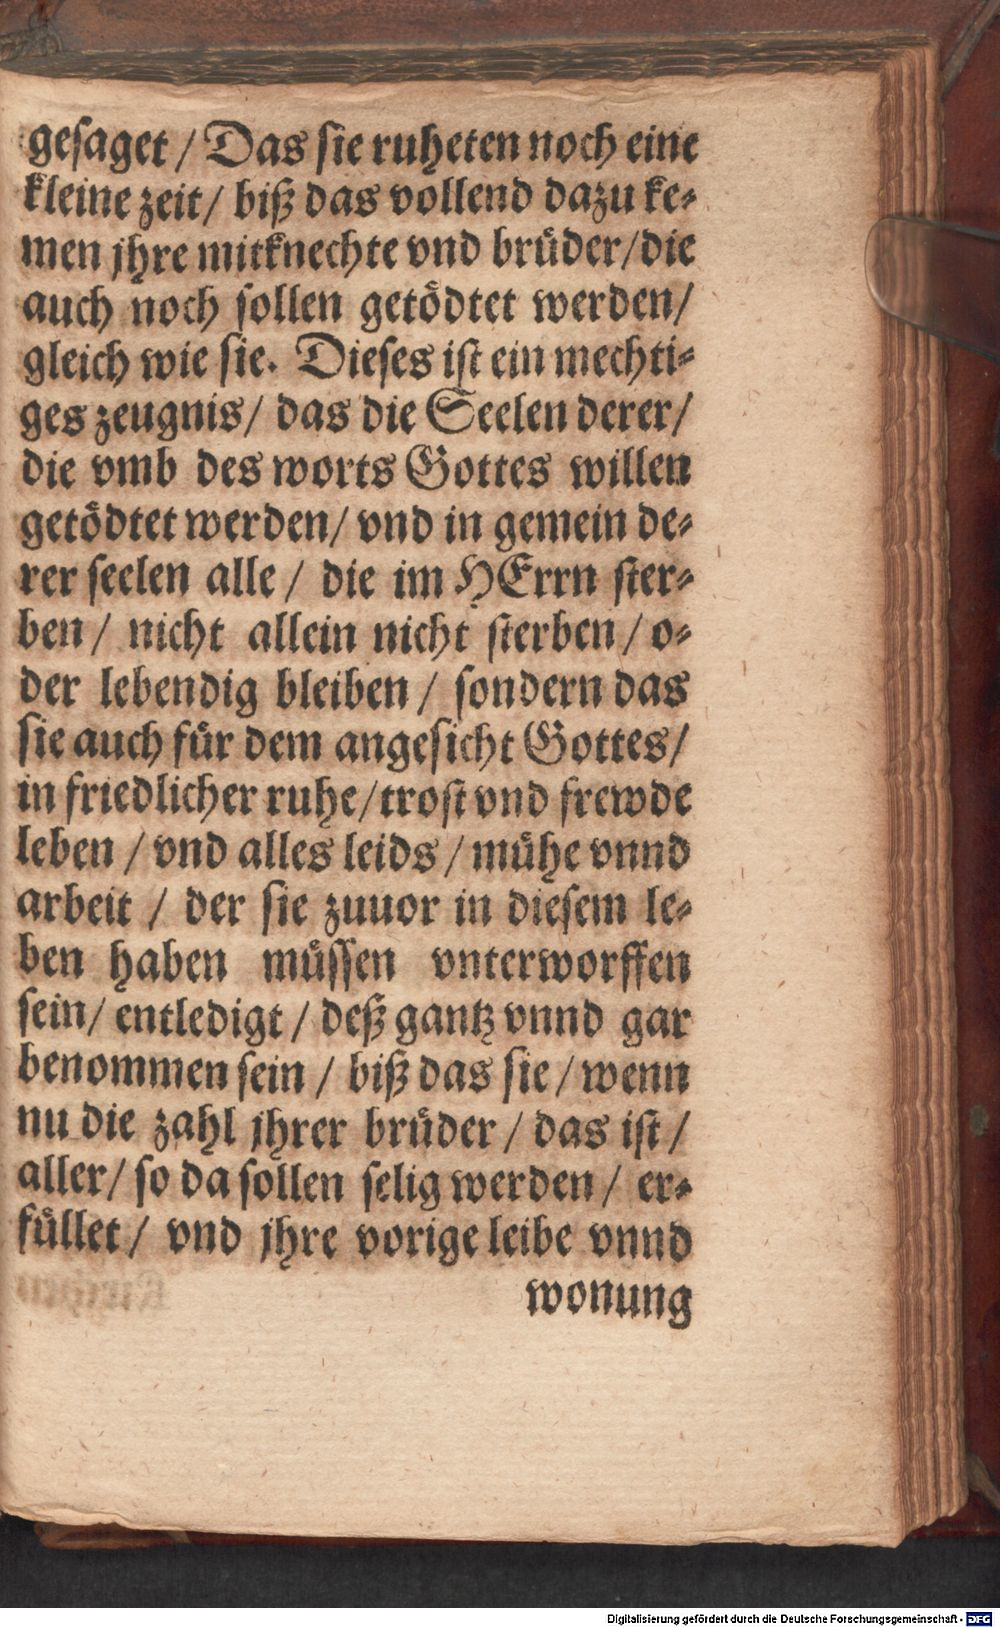 gesaget / Das sie ruheten noch eine
kleine zeit / biß das vollend dazu ke-
men jhre mitknechte vnd brüder / die
auch noch sollen getödtet werden /
gleich wie sie. Dieses ist ein mechti-
ges zeugnis / das die Seelen derer /
die vmb des worts Gottes willen
getödtet werden / vnd in gemein de-
rer seelen alle / die im HErrn ster-
ben / nicht allein nicht sterben / o-
der lebendig bleiben / sondern das
sie auch für dem angesicht Gottes /
in friedlicher ruhe / trost vnd frewde
leben / vnd alles leids / mühe vnnd
arbeit / der sie zuuor in diesem le-
ben haben müssen vnterworffen
sein / entledigt / deß gantz vnnd gar
benommen sein / biß das sie / wenn
nu die zahl jhrer brüder / das ist /
aller / so da sollen selig werden / er-
füllet / vnd jhre vorige leibe vnnd
wonung
Digitalisierung gefördert durch die Deutsche Forschungsgemeinschaft - DFG